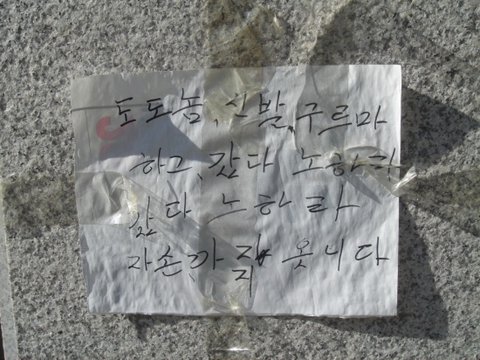 도도놈, 신발, 구르마
하고, 갔다 노하라
갔다 노하라
자손, 까지 옷니다